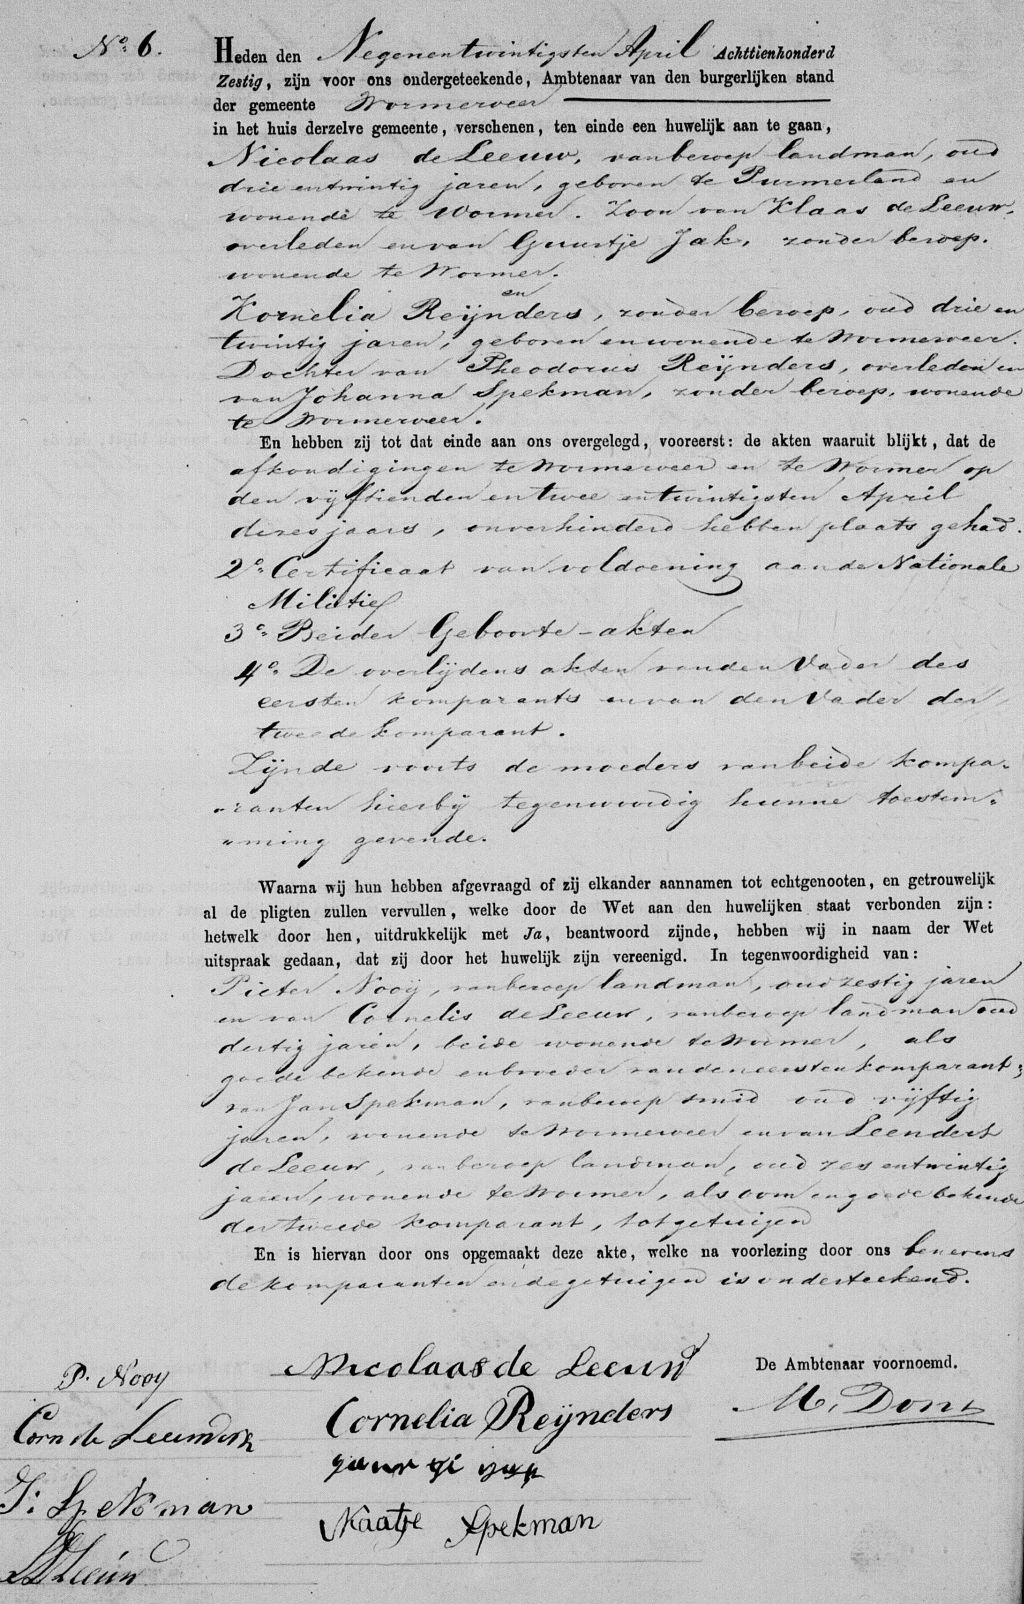 No. 6.
Heden den Negenentwintigsten April Achttienhonderd
Zestig, zijn voor ons ondergeteekende, Ambtenaar van den burgerlijken stand
der gemeente Wormerveer
in het huis derzelve gemeente, verschenen, ten einde een huwelijk aan te gaan,
Nicolaas de Leeuw, van beroep landman, oud
drie entwintig jaren, geboren te Purmerland en
wonende te Wormer. Zoon van Klaas de Leeuw,
overleden en van Guurtje Jak, zonder beroep.
wonende te Wormer.
en
Kornelia Reijnders, zonder beroep, oud drie en
twintig jaren, geboren en wonende te Wormerveer.
Dochter van Theodorus Reijnders, overleden en
van Johanna Spekman, zonder beroep, wonende
te Wormerveer.
En hebben zij tot dat einde aan ons overgelegd, vooreerst: de akten waaruit blijkt, dat de
afkondigingen te Wormerveer en te Wormer op
den vijftienden en twee entwintigsten April
dezes jaars, onverhinderd hebben plaats gehad.
2o. Certificaat van voldoening aan de Nationale
Militie
3o. Beider Geboorte-akten
4o. De overlijdens akten van den Vader des
eersten komparants en van den Vader der
tweede komparant.
Zijnde voorts de moeders van beide kompa-
"ranten hierbij tegenwoordig hunne toestem-
"ming gevende.
Waarna wij hun hebben afgevraagd of zij elkander aannamen tot echtgenooten, en getrouwelijk
al de pligten zullen vervullen, welke door de Wet aan den huwelijken staat verbonden zijn:
hetwelk door hen, uitdrukkelijk met Ja, beantwoord zijnde, hebben wij in naam der Wet
uitspraak gedaan, dat zij door het huwelijk zijn vereenigd. In tegenwoordigheid van:
Pieter Nooij, van beroep landman, oud zestig jaren
en van Cornelis de Leeuw, van beroep landman oud
dertig jaren, beide wonende te Wormer, als
goede bekende en broeder van den eersten komparant;
van Jan Spekman, van beroep smid oud vijftig
jaren, wonende te Wormerveer en van Leendert
de Leeuw, van beroep landman, oud zes entwintig
jaren, wonende te Wormer, als oom en goede bekende
der tweede komparant, tot getuigen
En is hiervan door ons opgemaakt deze akte, welke na voorlezing door ons benevens
de komparanten en de getuigen is onderteekend.
P. Nooy
Nicolaas de Leeuw
De Ambtenaar voornoemd.
Corn de Leeuw
Cornelia Reijnders
J: Spekman
Naatje Spekman
L D Leeuw